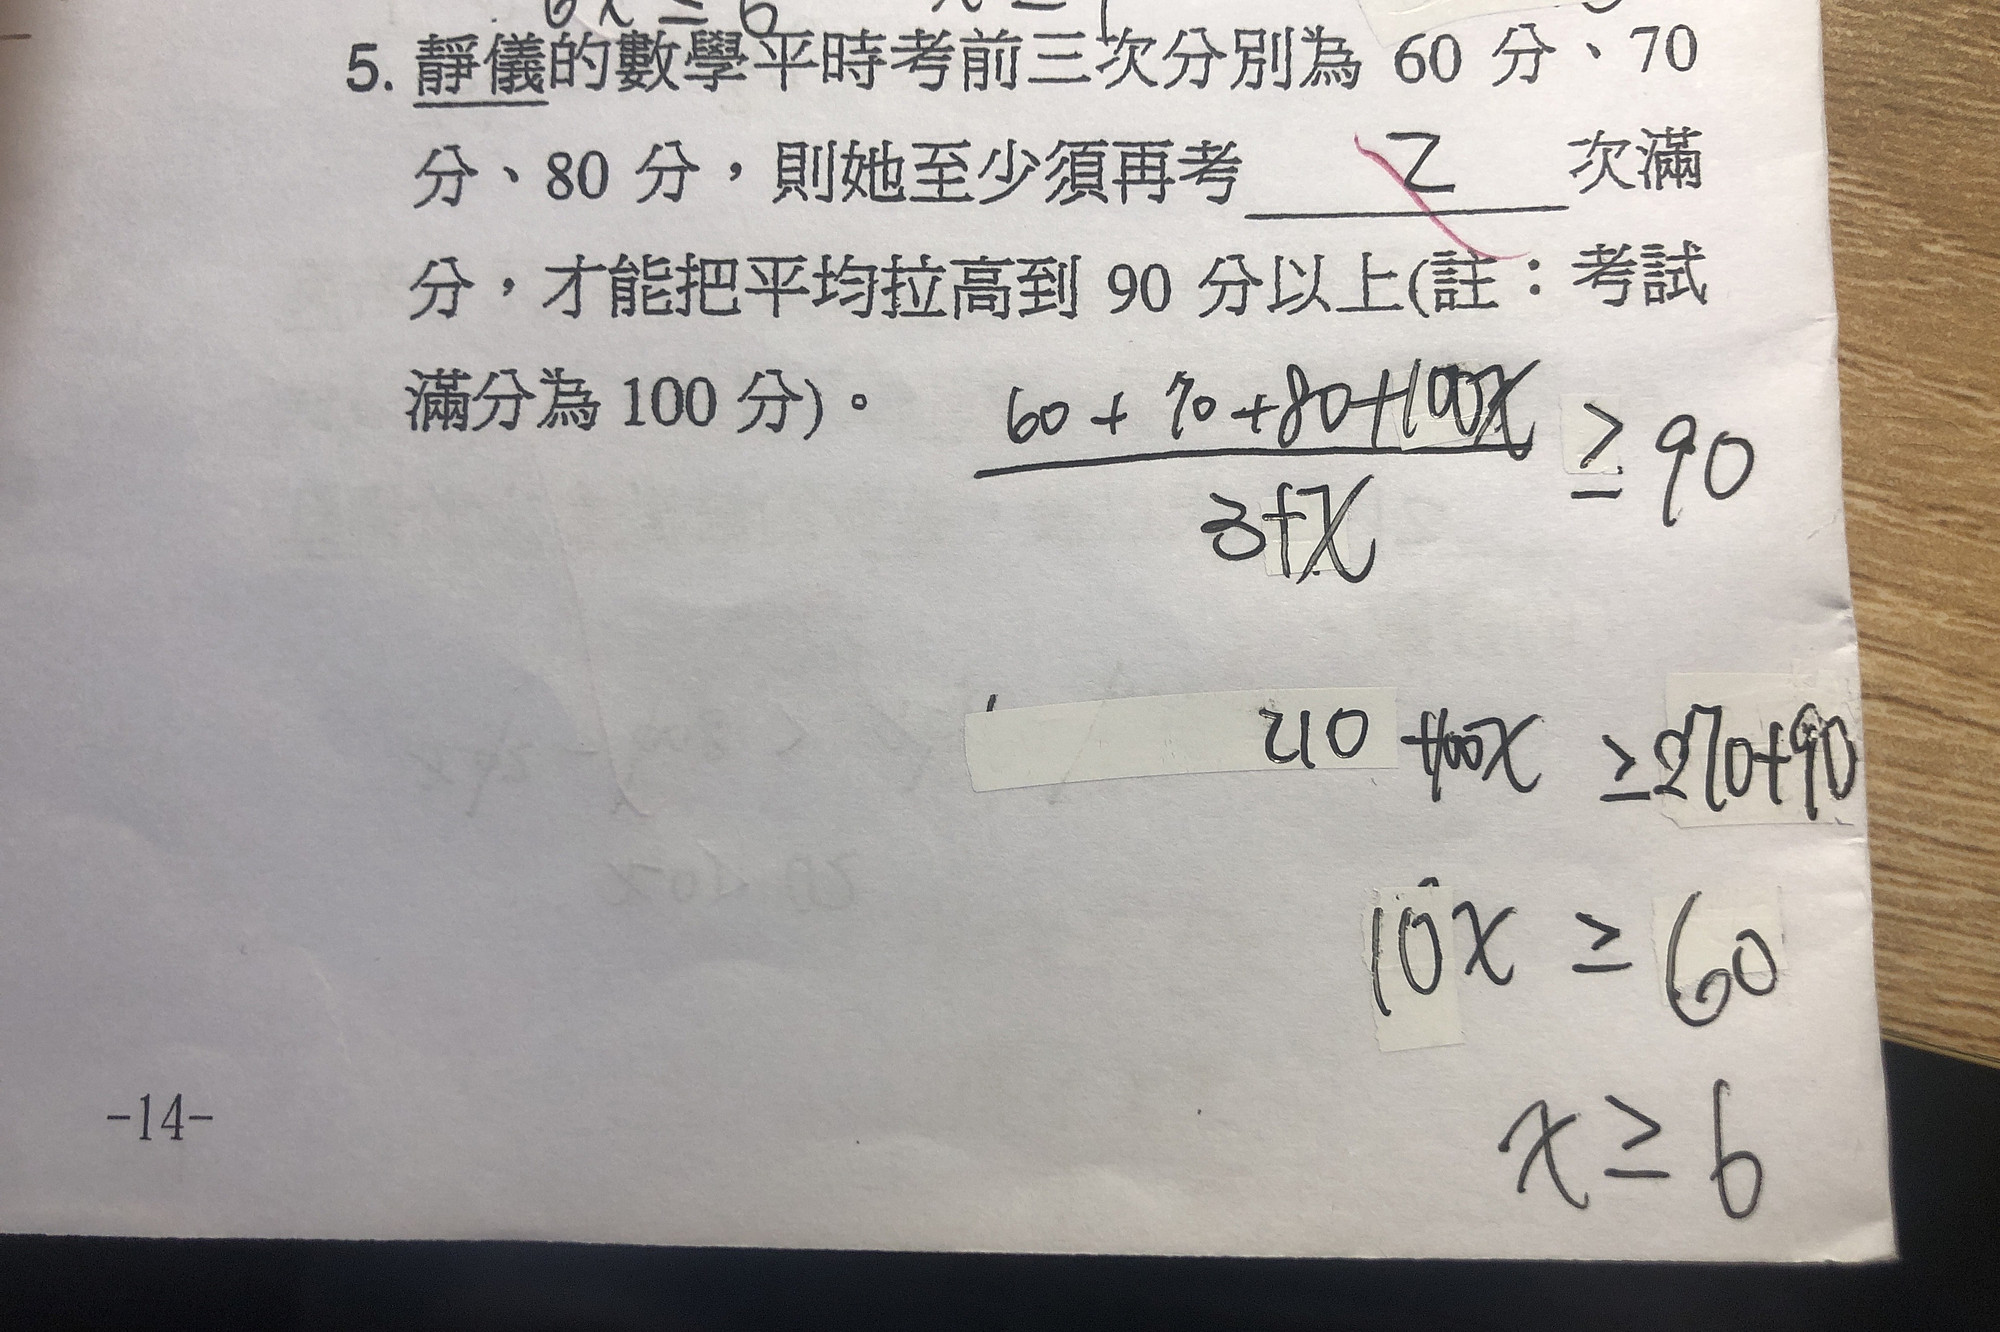 5. 靜儀的數學平時考前三次分別為 60 分、70
分、80 分，則她至少須再考 2 次滿
分，才能把平均拉高到 90 分以上(註：考試
滿分為 100 分)。
60 + 70 + 80 + 100x
3+x
≥ 90
210 +100x ≥ 270+90
10x ≥ 60
x ≥ 6
-14-